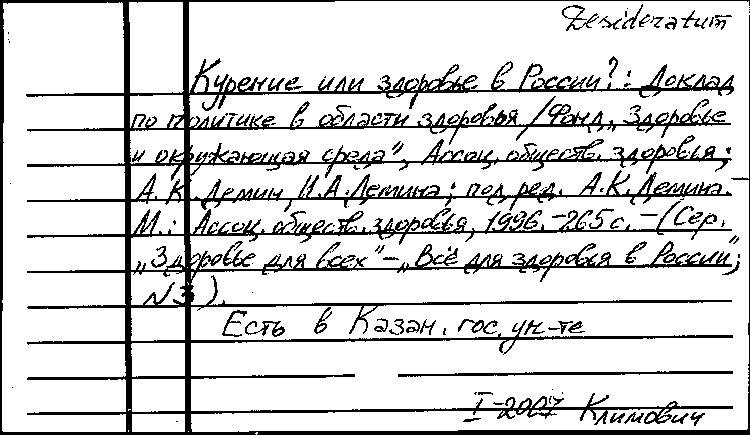 Desideratum
Курение или здоровье в России?: Доклад
по политике в области здоровья / Фонд „Здоровье
и окружающая среда", Ассоц. обществ. здоровья;
А.К. Демин, И.А. Демина; под ред. А.К. Демина.-
М.: Ассоц. обществ. здоровья, 1996.-265 с. - (Сер.
„Здоровье для всех" - „Всё для здоровья в России";
N 3).
Есть в Казан. гос. ун-те
I-2007 Климович